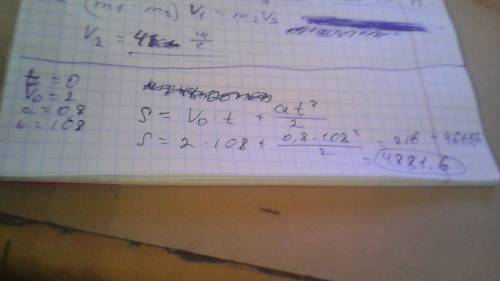 (m1 - m2) V1 = m2 V2
V2 = 4 м/с
t = 0
V0 = 2
a = 0,8
t = 108
S = V0 · t + at²/2
S = 2 · 108 + 0,8 · 108²/2 = 216 +
= 4881,6